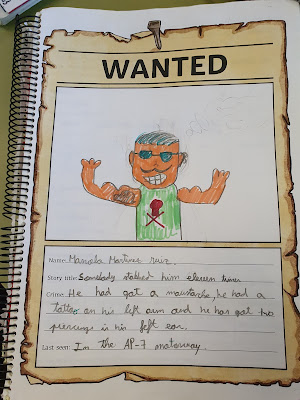 WANTED
Name: Manola Martines ruiz.
Story title: Somebody stabed him eleven times
Crime: He had got a moustache, he had a
tattoo on his left arm and he has got two
piercings in his left ear.
Last seen: In the AP-7 motorway.